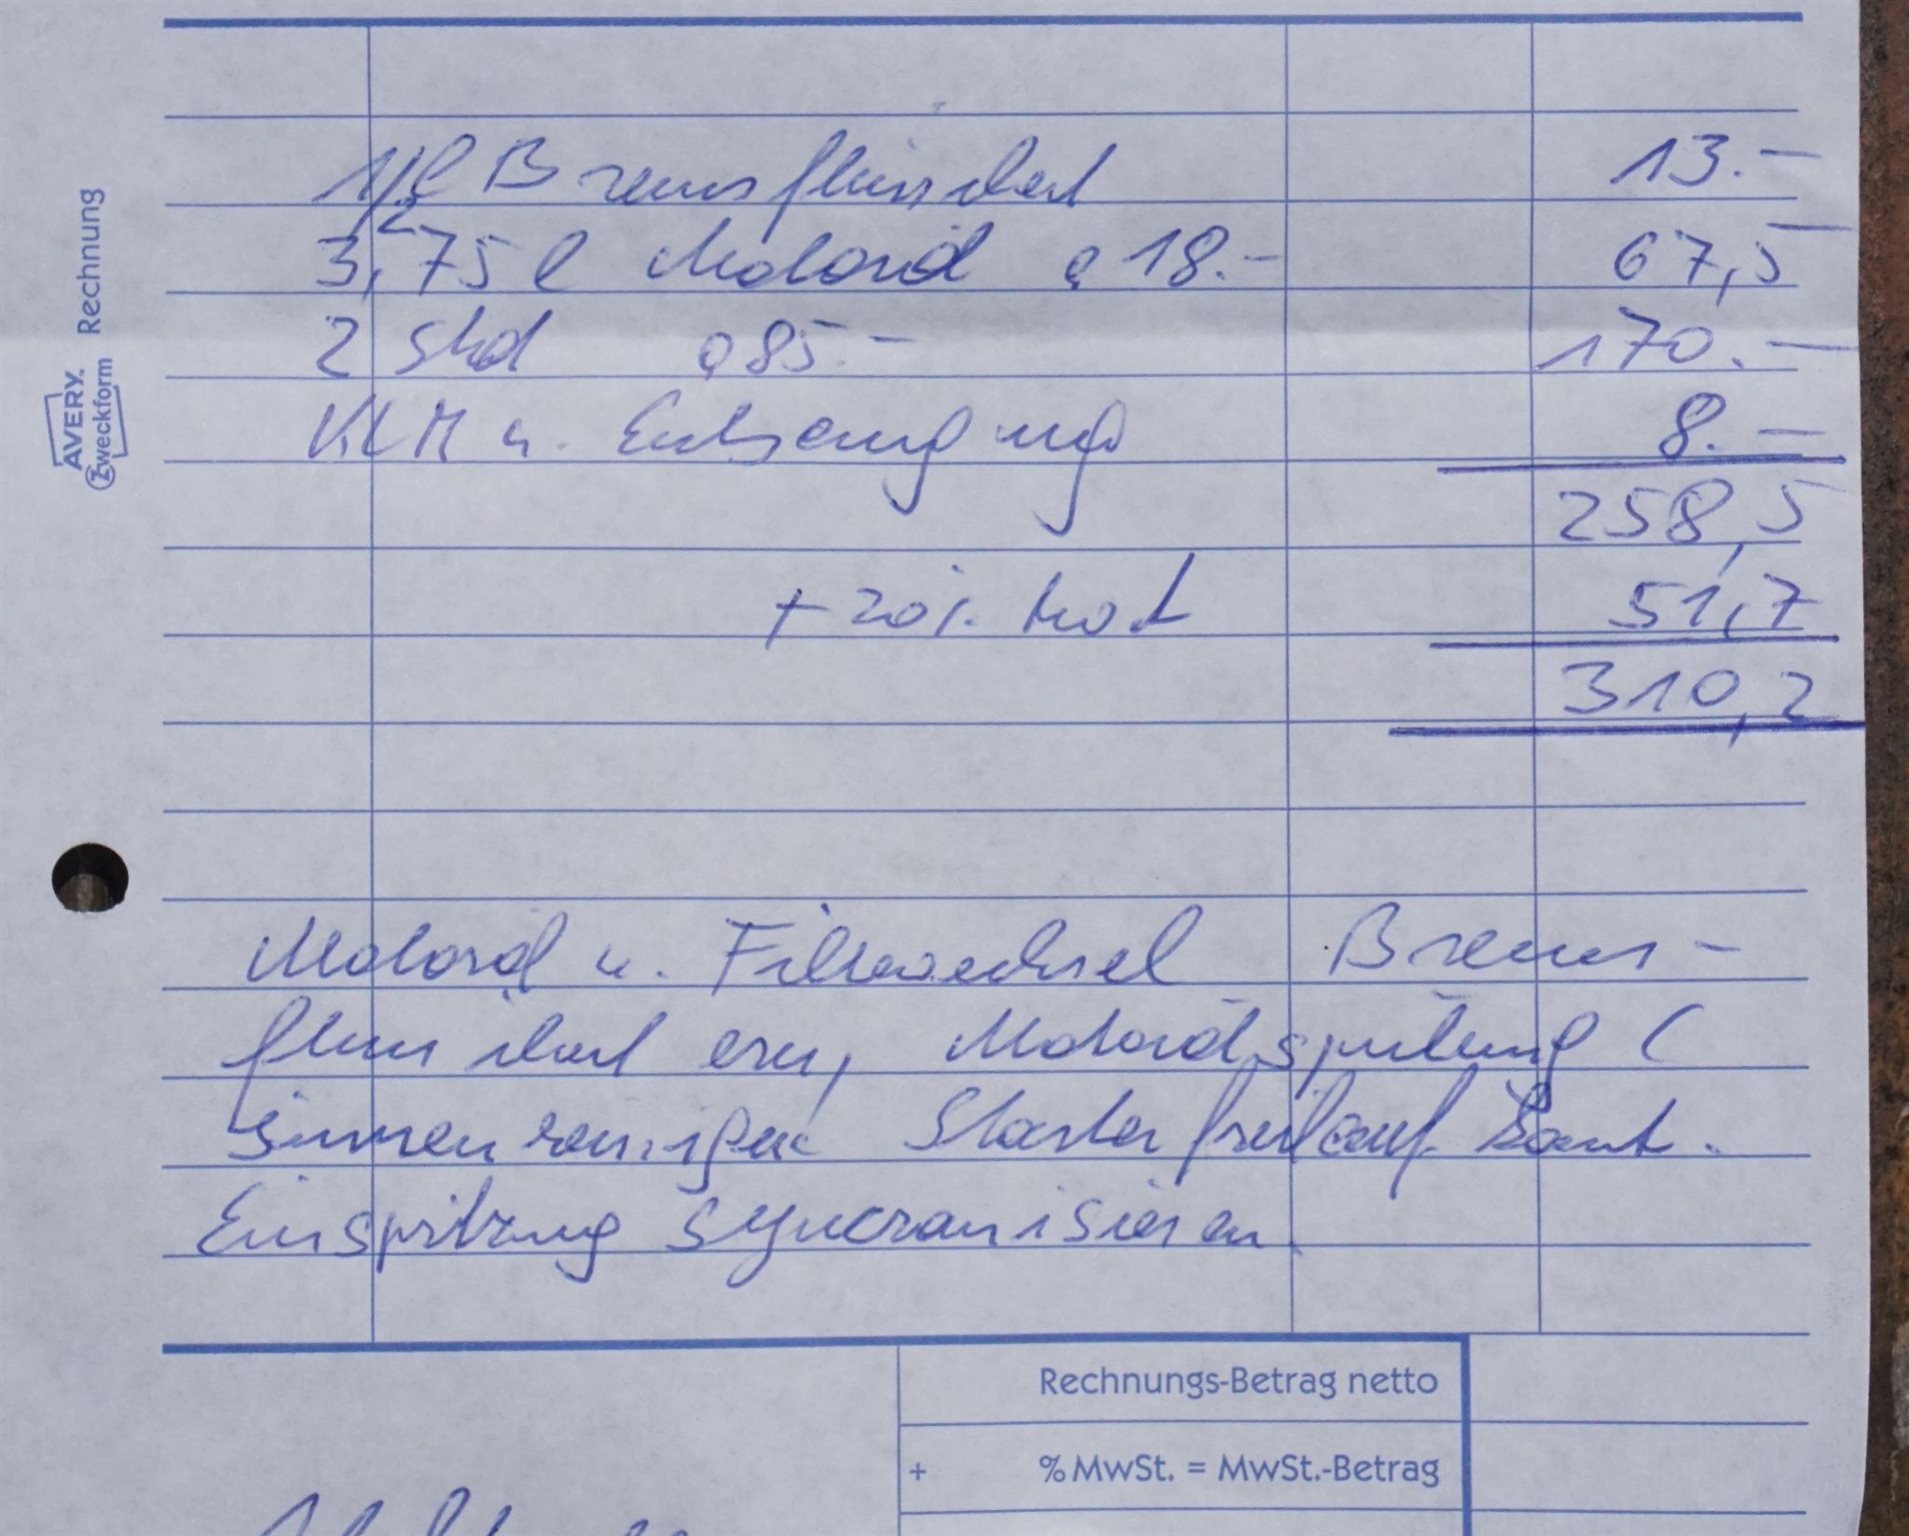 1/2 l Bremsflüssikeit 13.–
3,75 l Motoröl a 18.– 67,5
2 Std a 85.– 170.–
KLM u. Entsorgung 8.–
258,5
+ 20% Mwst 51,7
310,2
Motoröl u. Filterwechsel Brems-
flüssikeit ern, Motorölspülung (
innenreinigen Starterfreilauf
Einspritzung syncronisieren
Rechnungs-Betrag netto
+ % MwSt. = MwSt.-Betrag
AVERY Zweckform Rechnung